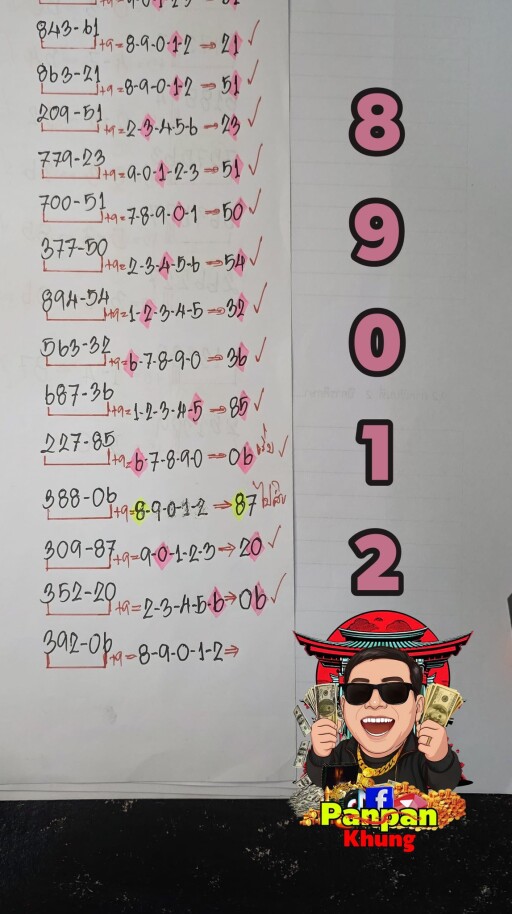 843-61
+9=8-9-0-1-2⇒21✓
863-21
+9=8-9-0-1-2⇒51✓
209-51
+9=2-3-4-5-6→23✓
779-23
+9=9-0-1-2-3→51✓
700-51
+9=7-8-9-0-1→50✓
377-50
+9=2-3-4-5-6→54✓
894-54
+9=1-2-3-4-5⇒32✓
563-32
+9=6-7-8-9-0→36✓
687-36
+9=1-2-3-4-5⇒85✓
227-85
+9=6-7-8-9-0→06 ✓
388-06
+9=8-9-0-1-2→87
309-87
+9=9-0-1-2-3→20✓
352-20
+9=2-3-4-5-6→06✓
392-06
+9=8-9-0-1-2⇒
8
9
0
1
2
Panpan
Khung